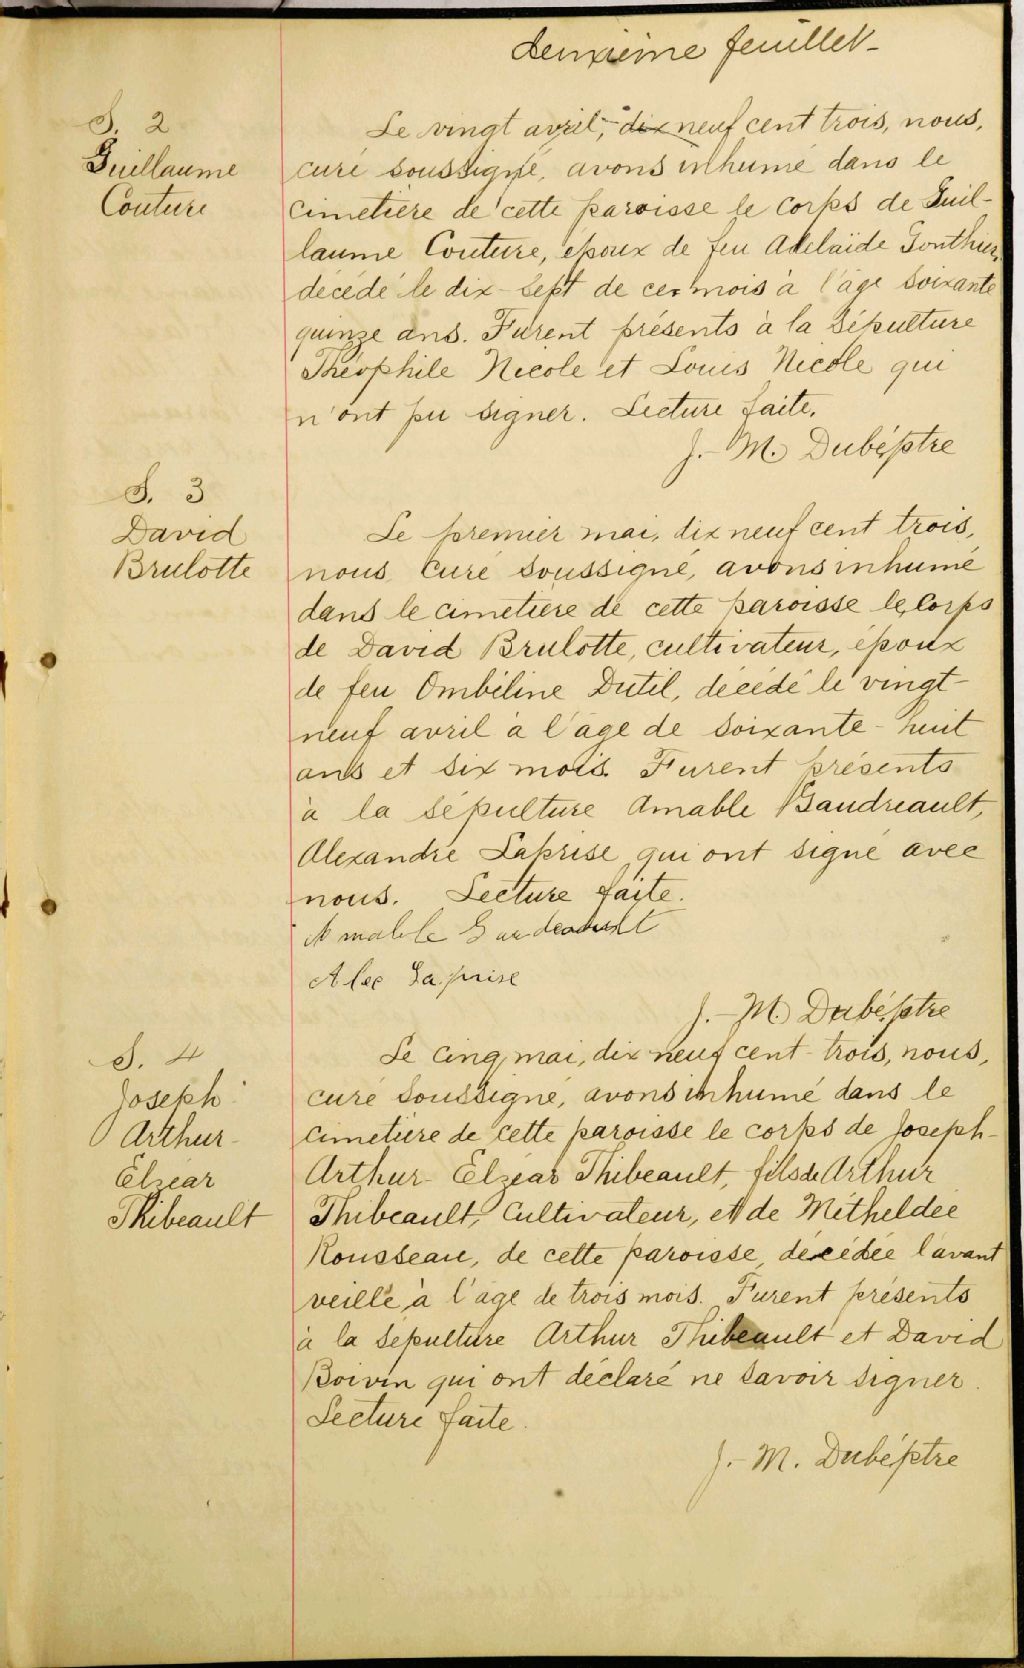 deuxième feuillet -
S. 2
Guillaume
Couture
Le vingt avril, dix neuf cent trois, nous,
curé soussigné, avons inhumé dans le
cimetière de cette paroisse le corps de Guil-
laume Couture, époux de feu Adelaïde Gonthier,
décédé le dix-sept de ce mois à l'âge soixante
quinze ans. Furent présents à la sépulture
Théophile Nicole et Louis Nicole qui
n'ont pu signer. Lecture faite.
J.-M. Dubé, ptre
S. 3
David
Brulotte
Le premier mai, dix neuf cent trois,
nous curé soussigné, avons inhumé
dans le cimetière de cette paroisse le corps
de David Brulotte, cultivateur, époux
de feu Ombéline Dutil, décédé le vingt-
neuf avril à l'âge de soixante-huit
ans et six mois. Furent présents
à la sépulture Amable Gaudreault,
Alexandre Laprise qui ont signé avec
nous. Lecture faite.
Amable
Alec Laprise
J.-M. Dubé, ptre
S. 4
Joseph
Arthur-
Elzéar
Thibeault
Le cinq mai, dix neuf cent-trois, nous,
curé soussigné, avons inhumé dans le
cimetière de cette paroisse le corps de Joseph-
Arthur-Elzéar Thibeault, fils de Arthur
Thibeault, cultivateur, et de Métheldée
Rousseau, de cette paroisse, décédée l'avant
veille à l'âge de trois mois. Furent présents
à la sépulture Arthur Thibeault et David
Boivin qui ont déclaré ne savoir signer.
Lecture faite.
J.-M. Dubé, ptre